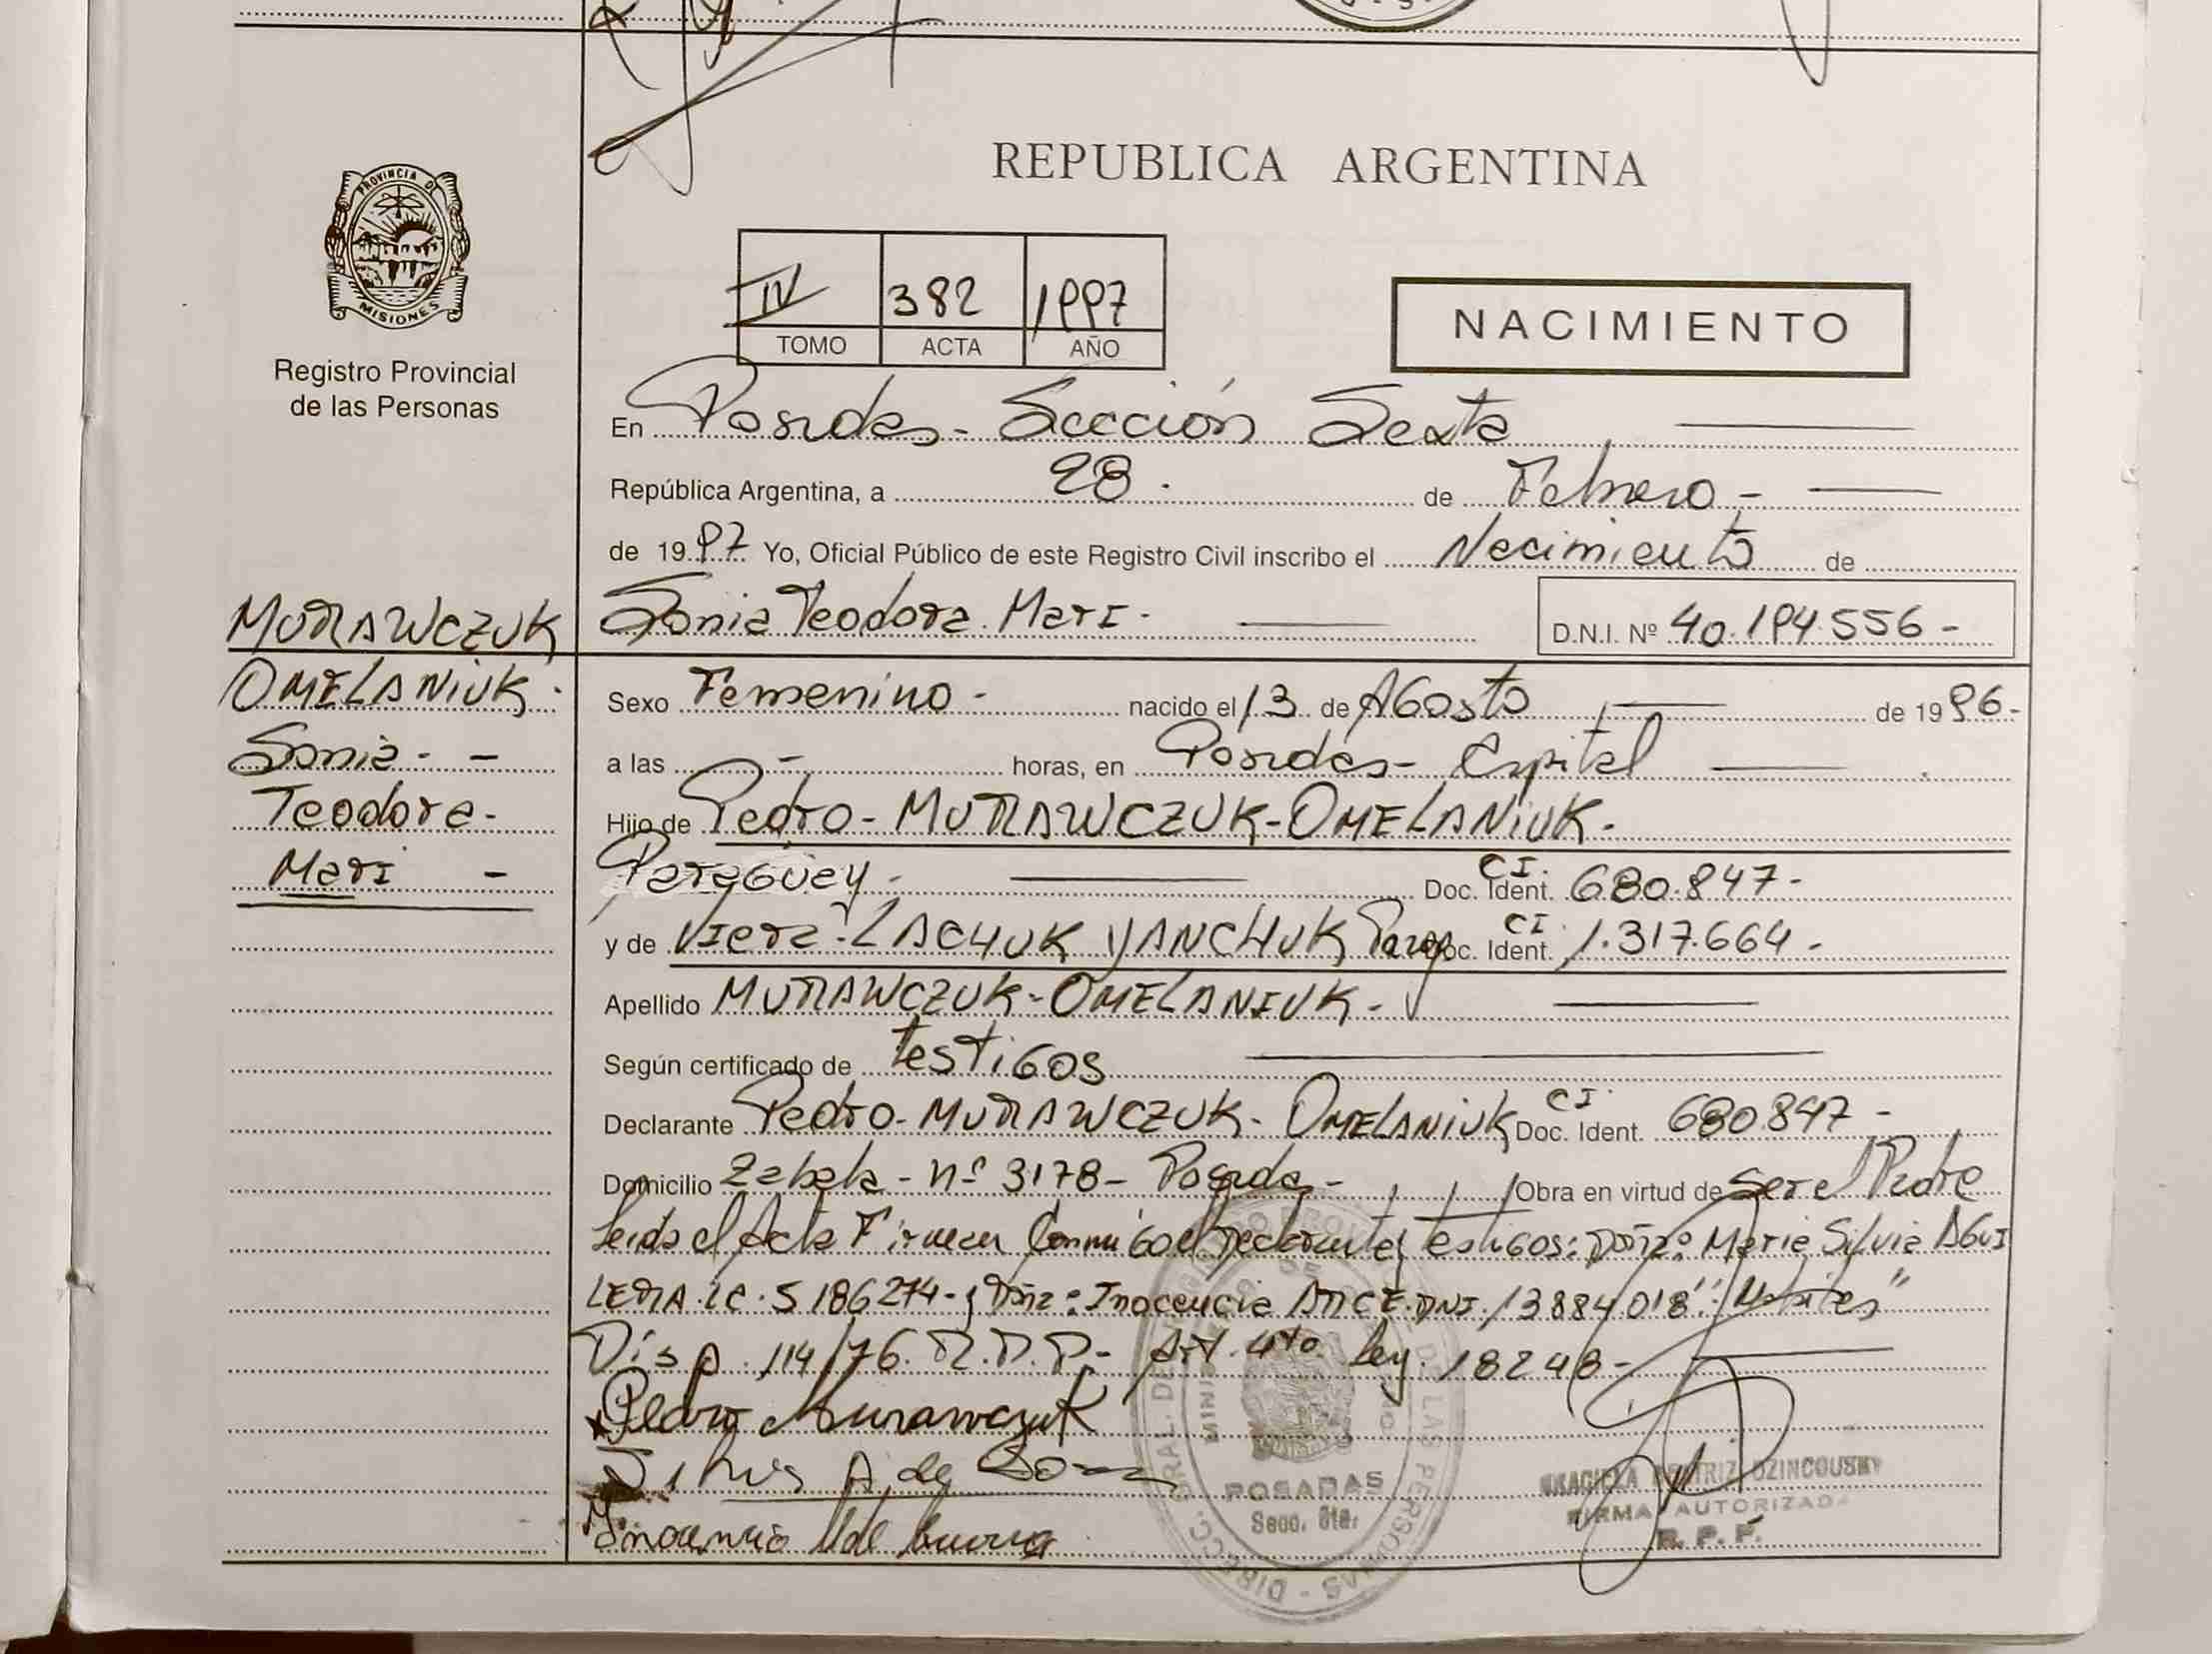 REPUBLICA ARGENTINA
PROVINCIA D
MISIONES
Registro Provincial
de las Personas
IV 382 1997
TOMO ACTA AÑO
NACIMIENTO
En Posadas - Sección Sexta
República Argentina, a 28. de Febrero -
de 1997 Yo, Oficial Público de este Registro Civil inscribo el Nacimiento de
MURAWCZUK Sonia Teodora Mari - D.N.I. Nº 40.194.556 -
OMELANIUK.
Sonia - -
Teodora -
Mari -
Sexo Femenino - nacido el 13 de AGosto de 1996 -
a las - horas, en Posadas - Capital
Hijo de Pedro - MURAWCZUK - OMELANIUK.
Paraguay - Doc. Ident. CI. 680.847 -
y de Viera - LACHUK YANCHUK Parag Doc. Ident. CI. 1.317.664 -
Apellido MURAWCZUK - OMELANIUK -
Según certificado de testiGos
Declarante Pedro - MURAWCZUK - OMELANIUK Doc. Ident. CI. 680847 -
Domicilio Zabala - nº 3178 - Posadas - Obra en virtud de Ser el Padre
Leida el Acta Firman ConmiGo el Declarante y testiGos: Doña: Maria Silvia AGUI
LERA LC. 5186274 - y Doña: Inocencia ARCE. DNI. 13884018
Disp. 114/76. R.P.P. - Art. 4to. Ley. 18248 -
Pedro Murawczuk
POSADAS
Secc. 6ta.
BEATRIZ DZINCOUSKY
FIRMA AUTORIZADA
R. P. P.